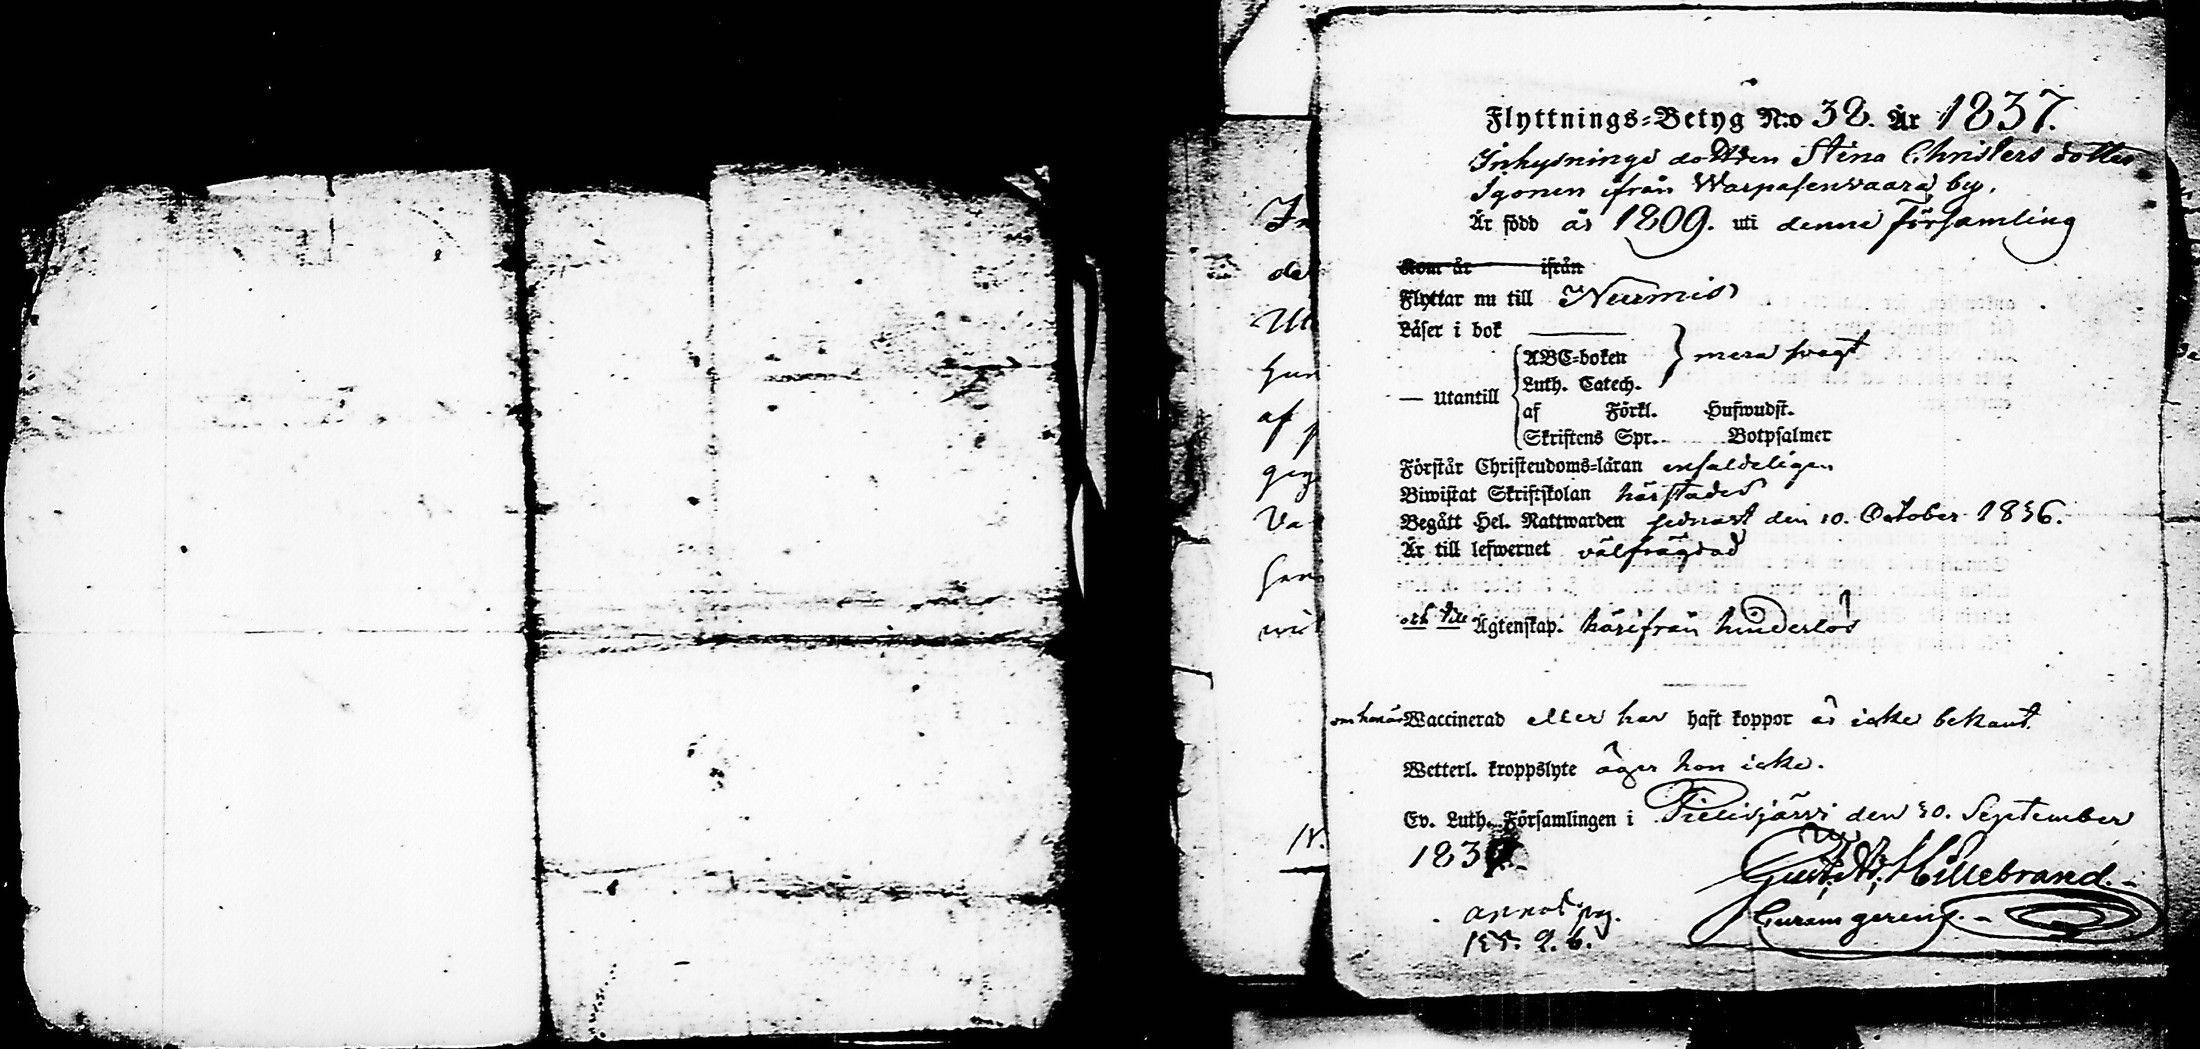 Flyttnings-Betyg N:o 38. År 1837.
Inhysninge dottren Stina Christers dotter
Igonen ifrån Warpasenvaara by.
Är född år 1809. uti denne Församling
Kom år ifrån
Flyttar nu till Nurmis
Läser i bok
ABC-boken } mera svagt
Luth. Catech.
— Utantill
af Förkl. Hufwudst.
Skriftens Spr. Botpsalmer
Förstår Christendoms-läran enfaldeligen
Biwistat Skriftskolan härstädes
Begått Hel. Nattwarden sednast den 10. October 1836.
Är till lefwernet välfrägdad
och till Ägtenskap. härifrån hinderlös
om hon är Waccinerad eller har haft koppor är icke bekant.
Wetterl. kroppslyte äger hon icke.
Ev. Luth. Församlingen i Pielisjärvi den 30. September
183
Hillebrand.
annot. pag.
In
de
Ut
hun
af
geg
Va
wit
N.